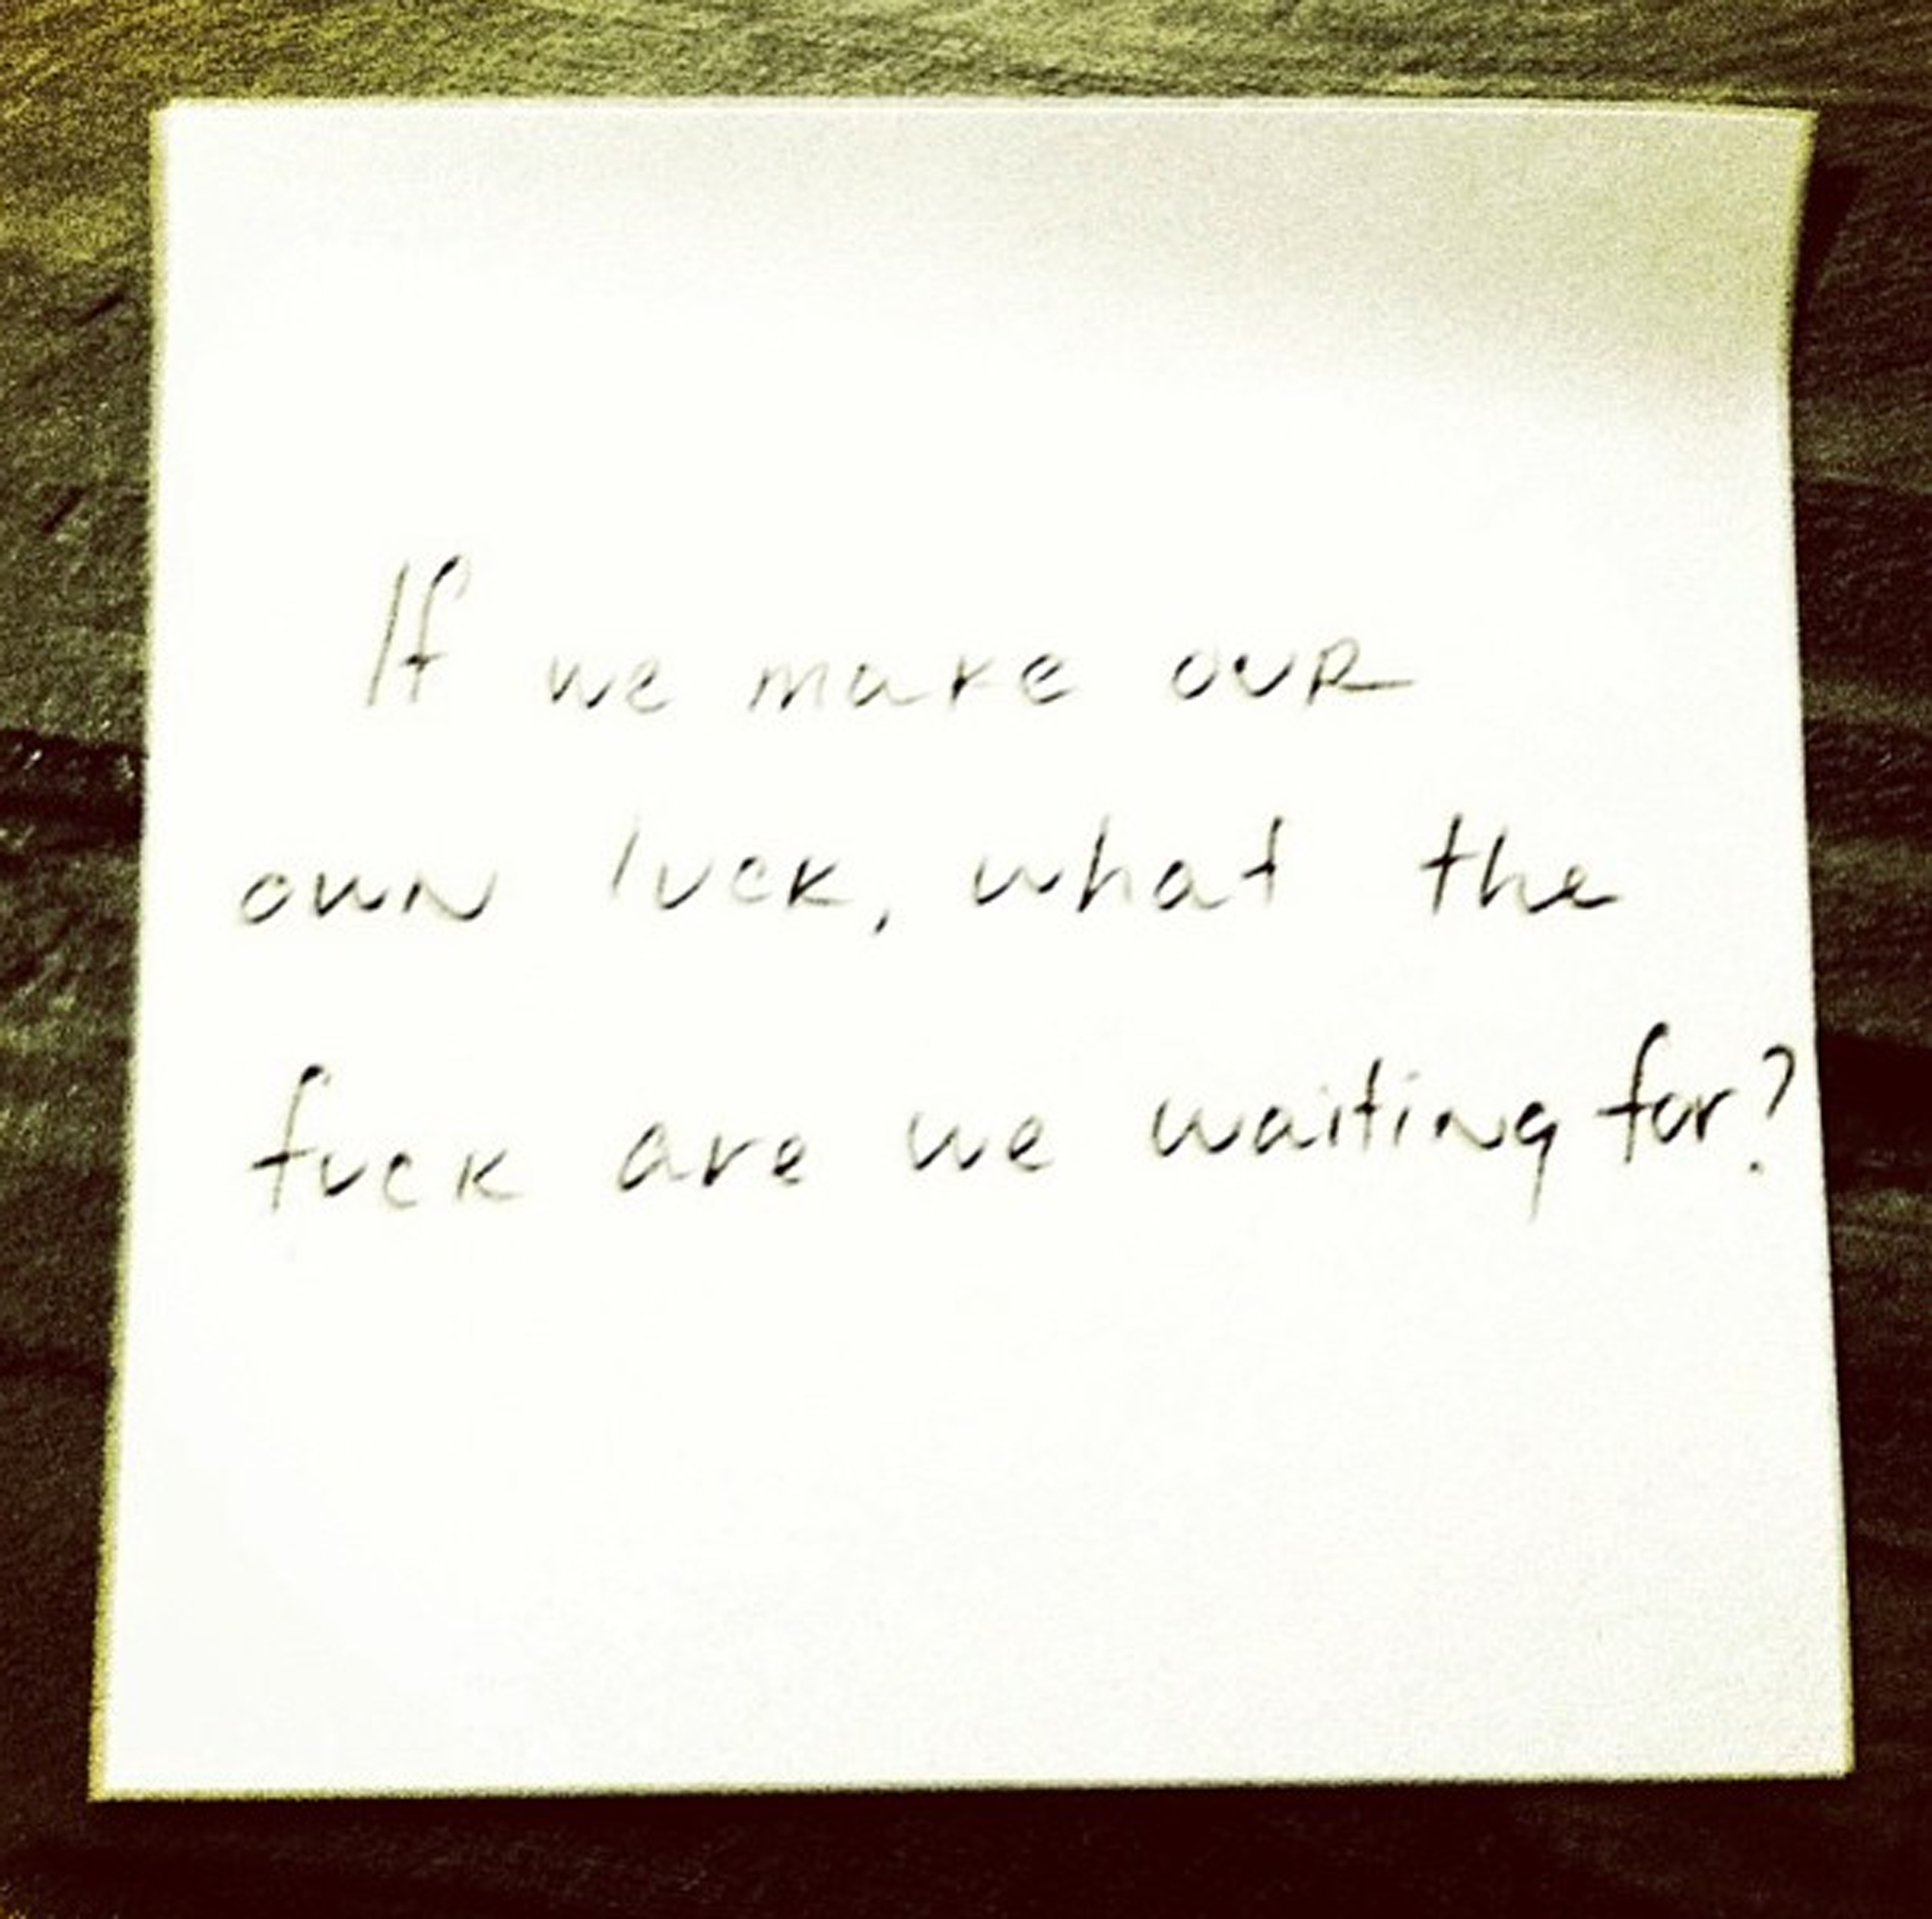 If we make our
own luck, what the
fuck are we waiting for?